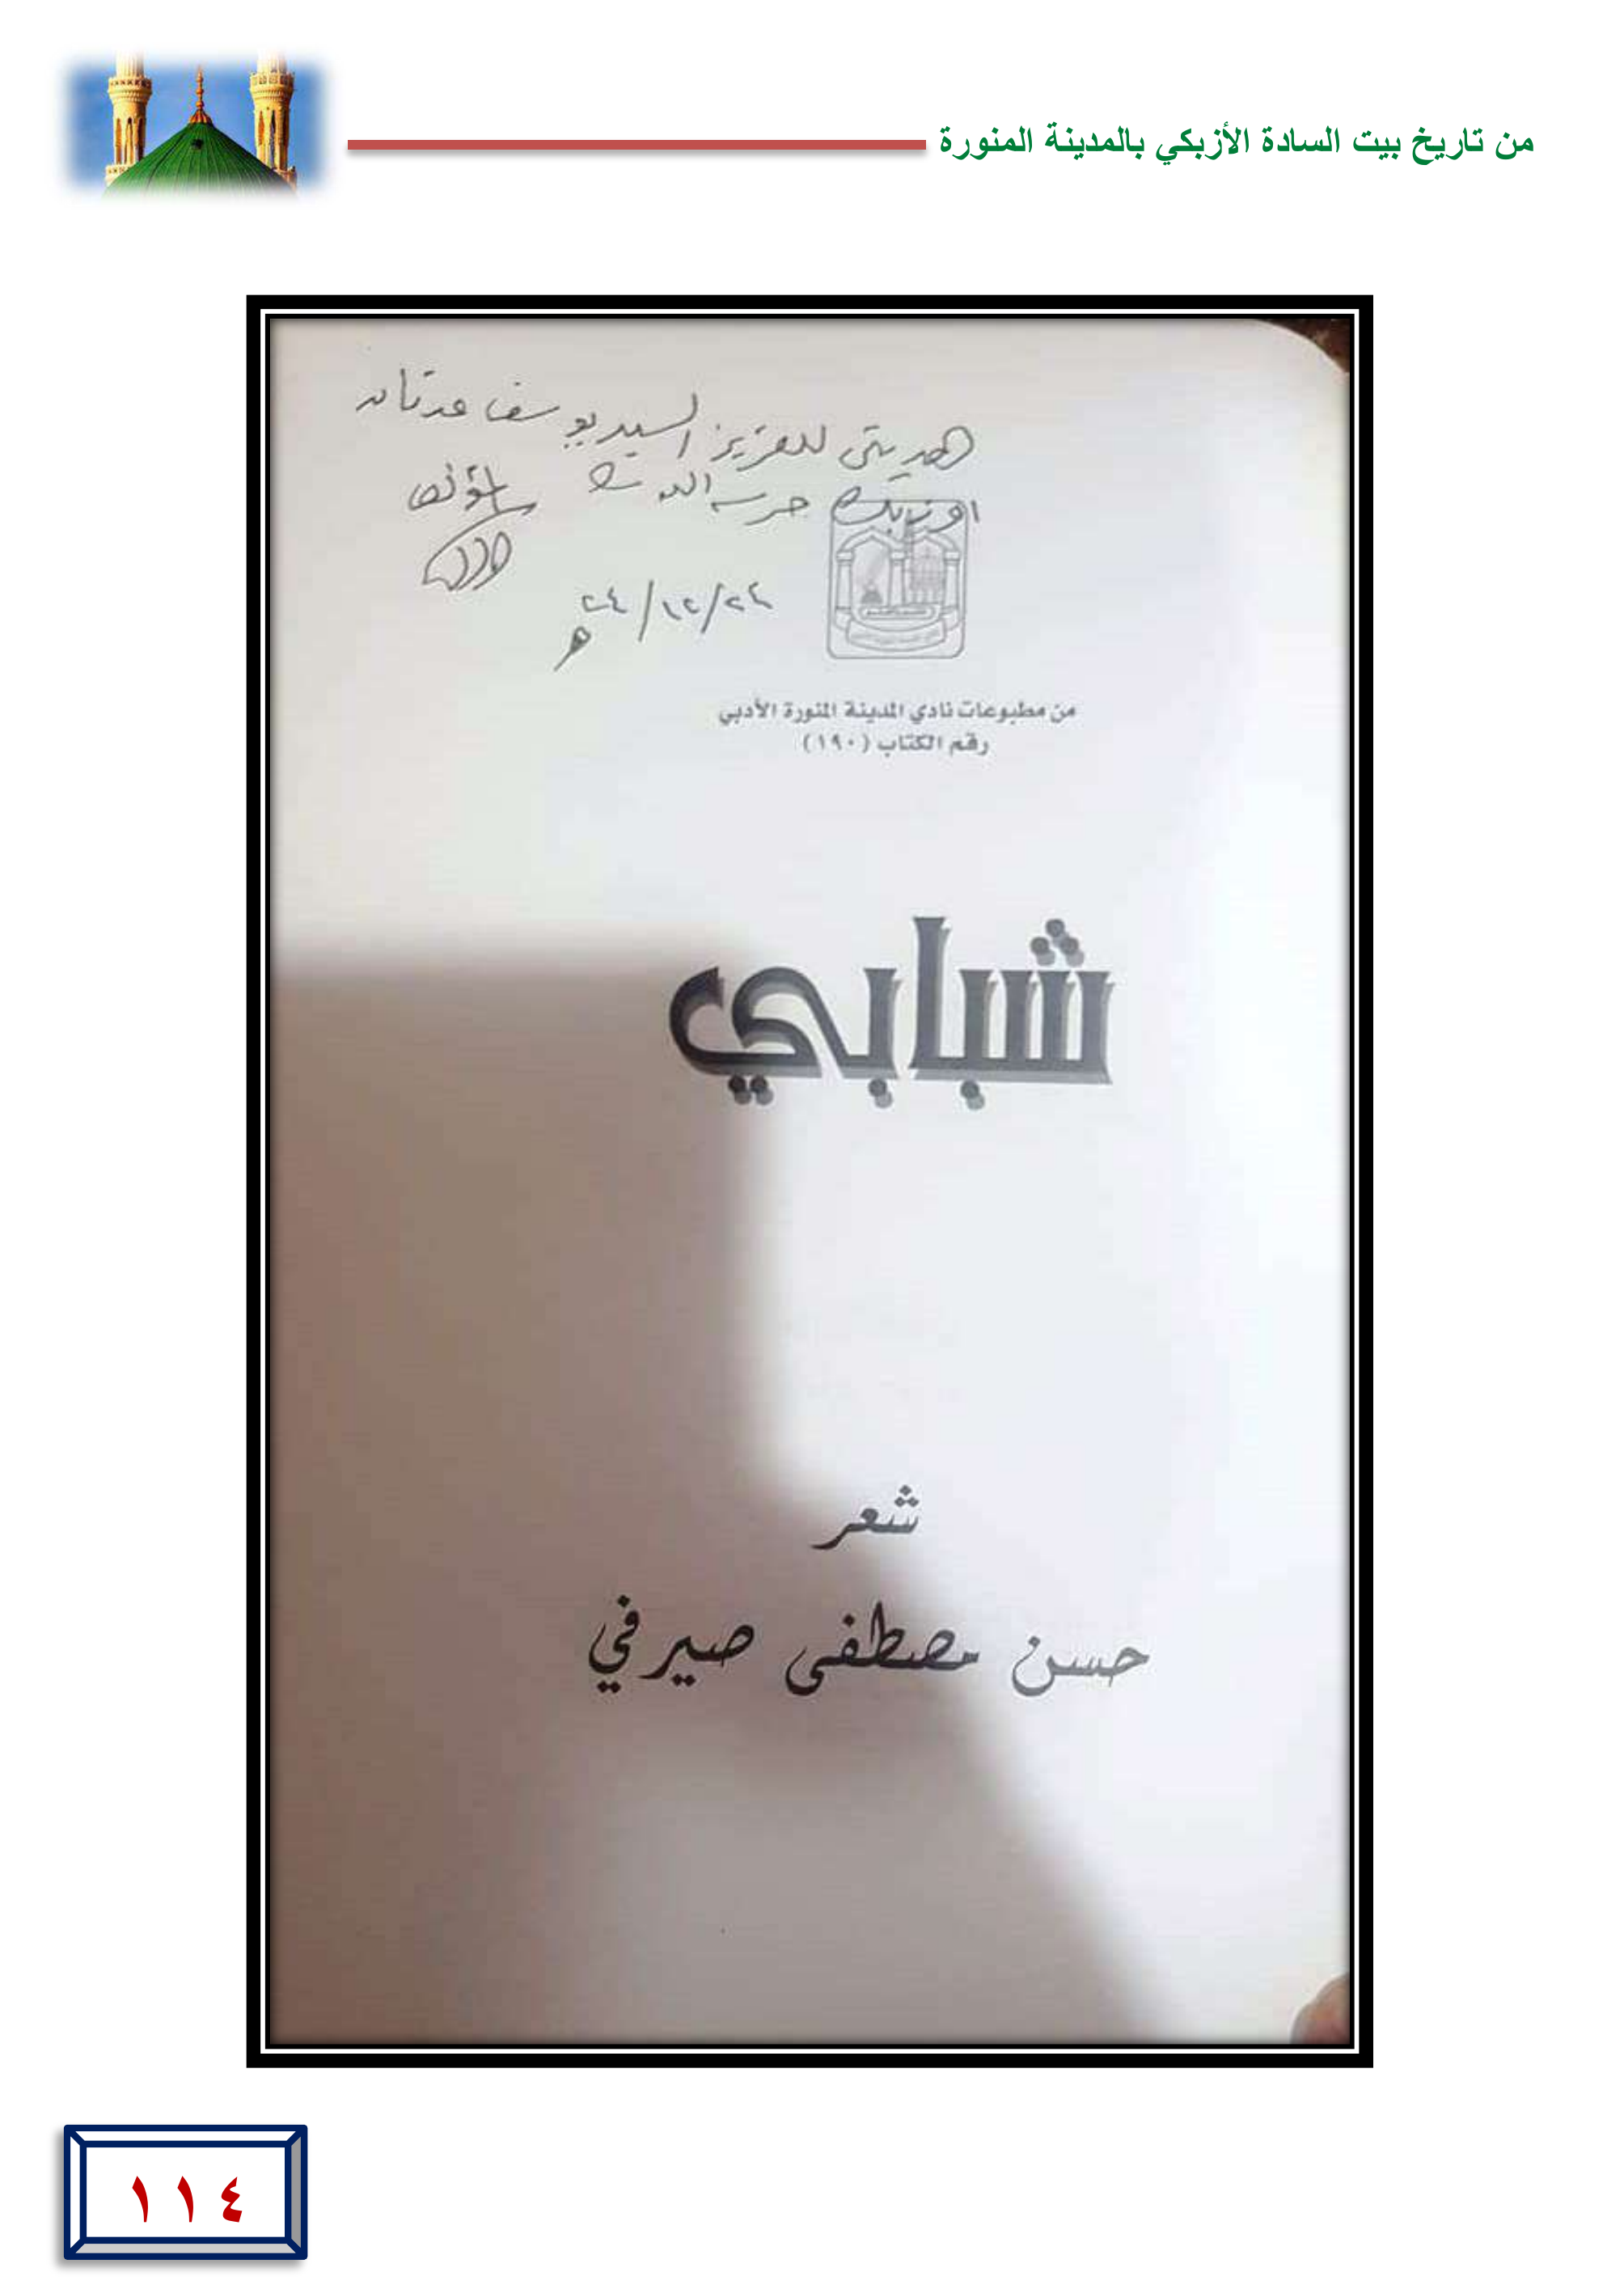 من تاريخ بيت السادة الأزبكي بالمدينة المنورة
هديتي للعزيز السيد يوسف عدنان
ازبك حرسه الله
المؤلف
٢٤/١٢/٢٤هـ
من مطبوعات نادي المدينة المنورة الأدبي
رقم الكتاب (١٩٠)
شبابي
شعر
حسن مصطفى صيرفي
١١٤